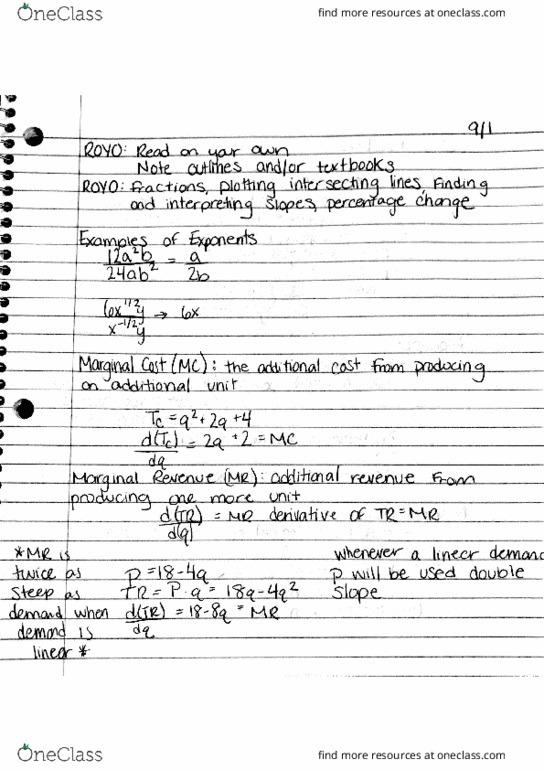 OneClass find more resources at oneclass.com
9/1
ROYO: Read on your own
Note outlines and/or textbooks
ROYO: fractions, plotting intersecting lines, finding
and interpreting slopes, percentage change
Examples of Exponents
12a²b = a
24ab² 2b
6x^1/2 y → 6x
x^-1/2 y
Marginal Cost (MC): the additional cost from producing
an additional unit
Tc = q² + 2q + 4
d(Tc) = 2q + 2 = MC
dq
Marginal Revenue (MR): additional revenue from
producing one more unit
d(TR) = MR derivative of TR = MR
d(q)
*MR is whenever a linear demand
twice as P = 18 - 4q P will be used double
steep as TR = P · q = 18q - 4q² slope
demand when d(TR) = 18 - 8q = MR
demand is dq
linear *
OneClass find more resources at oneclass.com